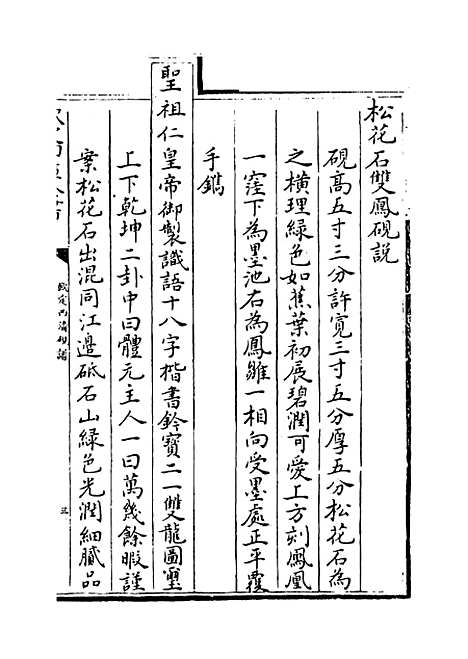 松花石雙鳳硯說
硯髙五寸三分許寛三寸五分厚五分松花石為
之橫理綠色如蕉葉初展碧潤可愛上方刻鳳凰
一窪下為墨池右為鳳雛一相向受墨處正平覆
手鐫
聖祖仁皇帝御製識語十八字楷書鈐寶二一雙龍圖璽
上下乾坤二卦中曰體元主人一曰萬幾餘暇謹
案松花石出混同江邊砥石山綠色光潤細膩品
欽定西清硯譜